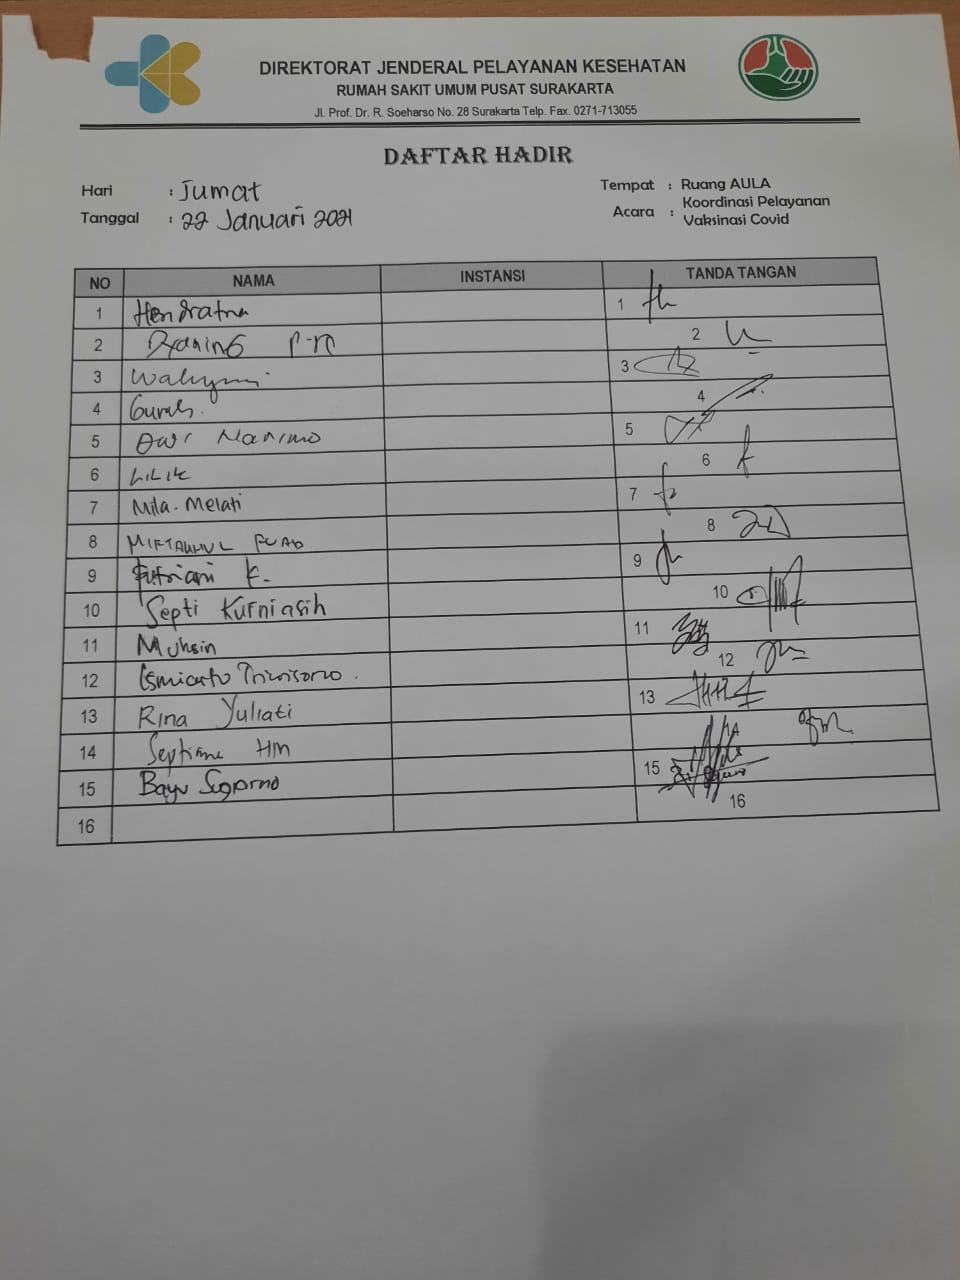 DIREKTORAT JENDERAL PELAYANAN KESEHATAN
RUMAH SAKIT UMUM PUSAT SURAKARTA
Jl. Prof. Dr. R. Soeharso No. 28 Surakarta Telp. Fax. 0271-713055
DAFTAR HADIR
Hari : Jumat
Tanggal : 22 Januari 2021
Tempat : Ruang AULA
Acara : Koordinasi Pelayanan
Vaksinasi Covid
NO NAMA INSTANSI TANDA TANGAN
1 Hendratna 1
2 2
3 Wahyuni 3
4 4
5 Dwi 5
6 LILIK 6
7 Mila. Melati 7
8 MIFTAKHUL FUAD 8
9 Fitriani K. 9
10 Septi Kurniasih 10
11 Muhsin 11
12 12
13 Rina Yuliati 13
14 HM 14
15 Bayu 15
16 16